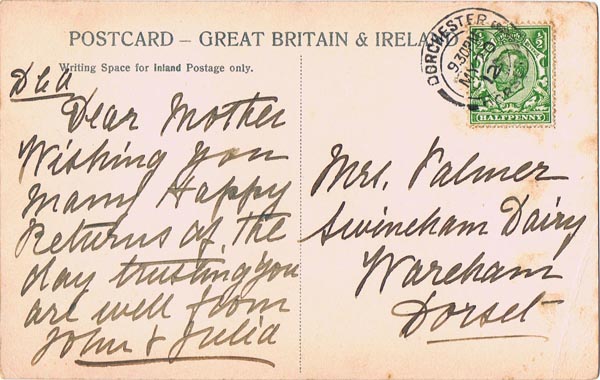 POSTCARD – GREAT BRITAIN & IRELAND
Writing Space for Inland Postage only.
Dear Mother
Wishing you
Many Happy
Returns of the
day trusting you
are well from
John & Julia
DORCHESTER
9.30PM
MY
12
½
½
HALFPENNY
Mrs. Palmer
Swineham Dairy
Wareham
Dorset